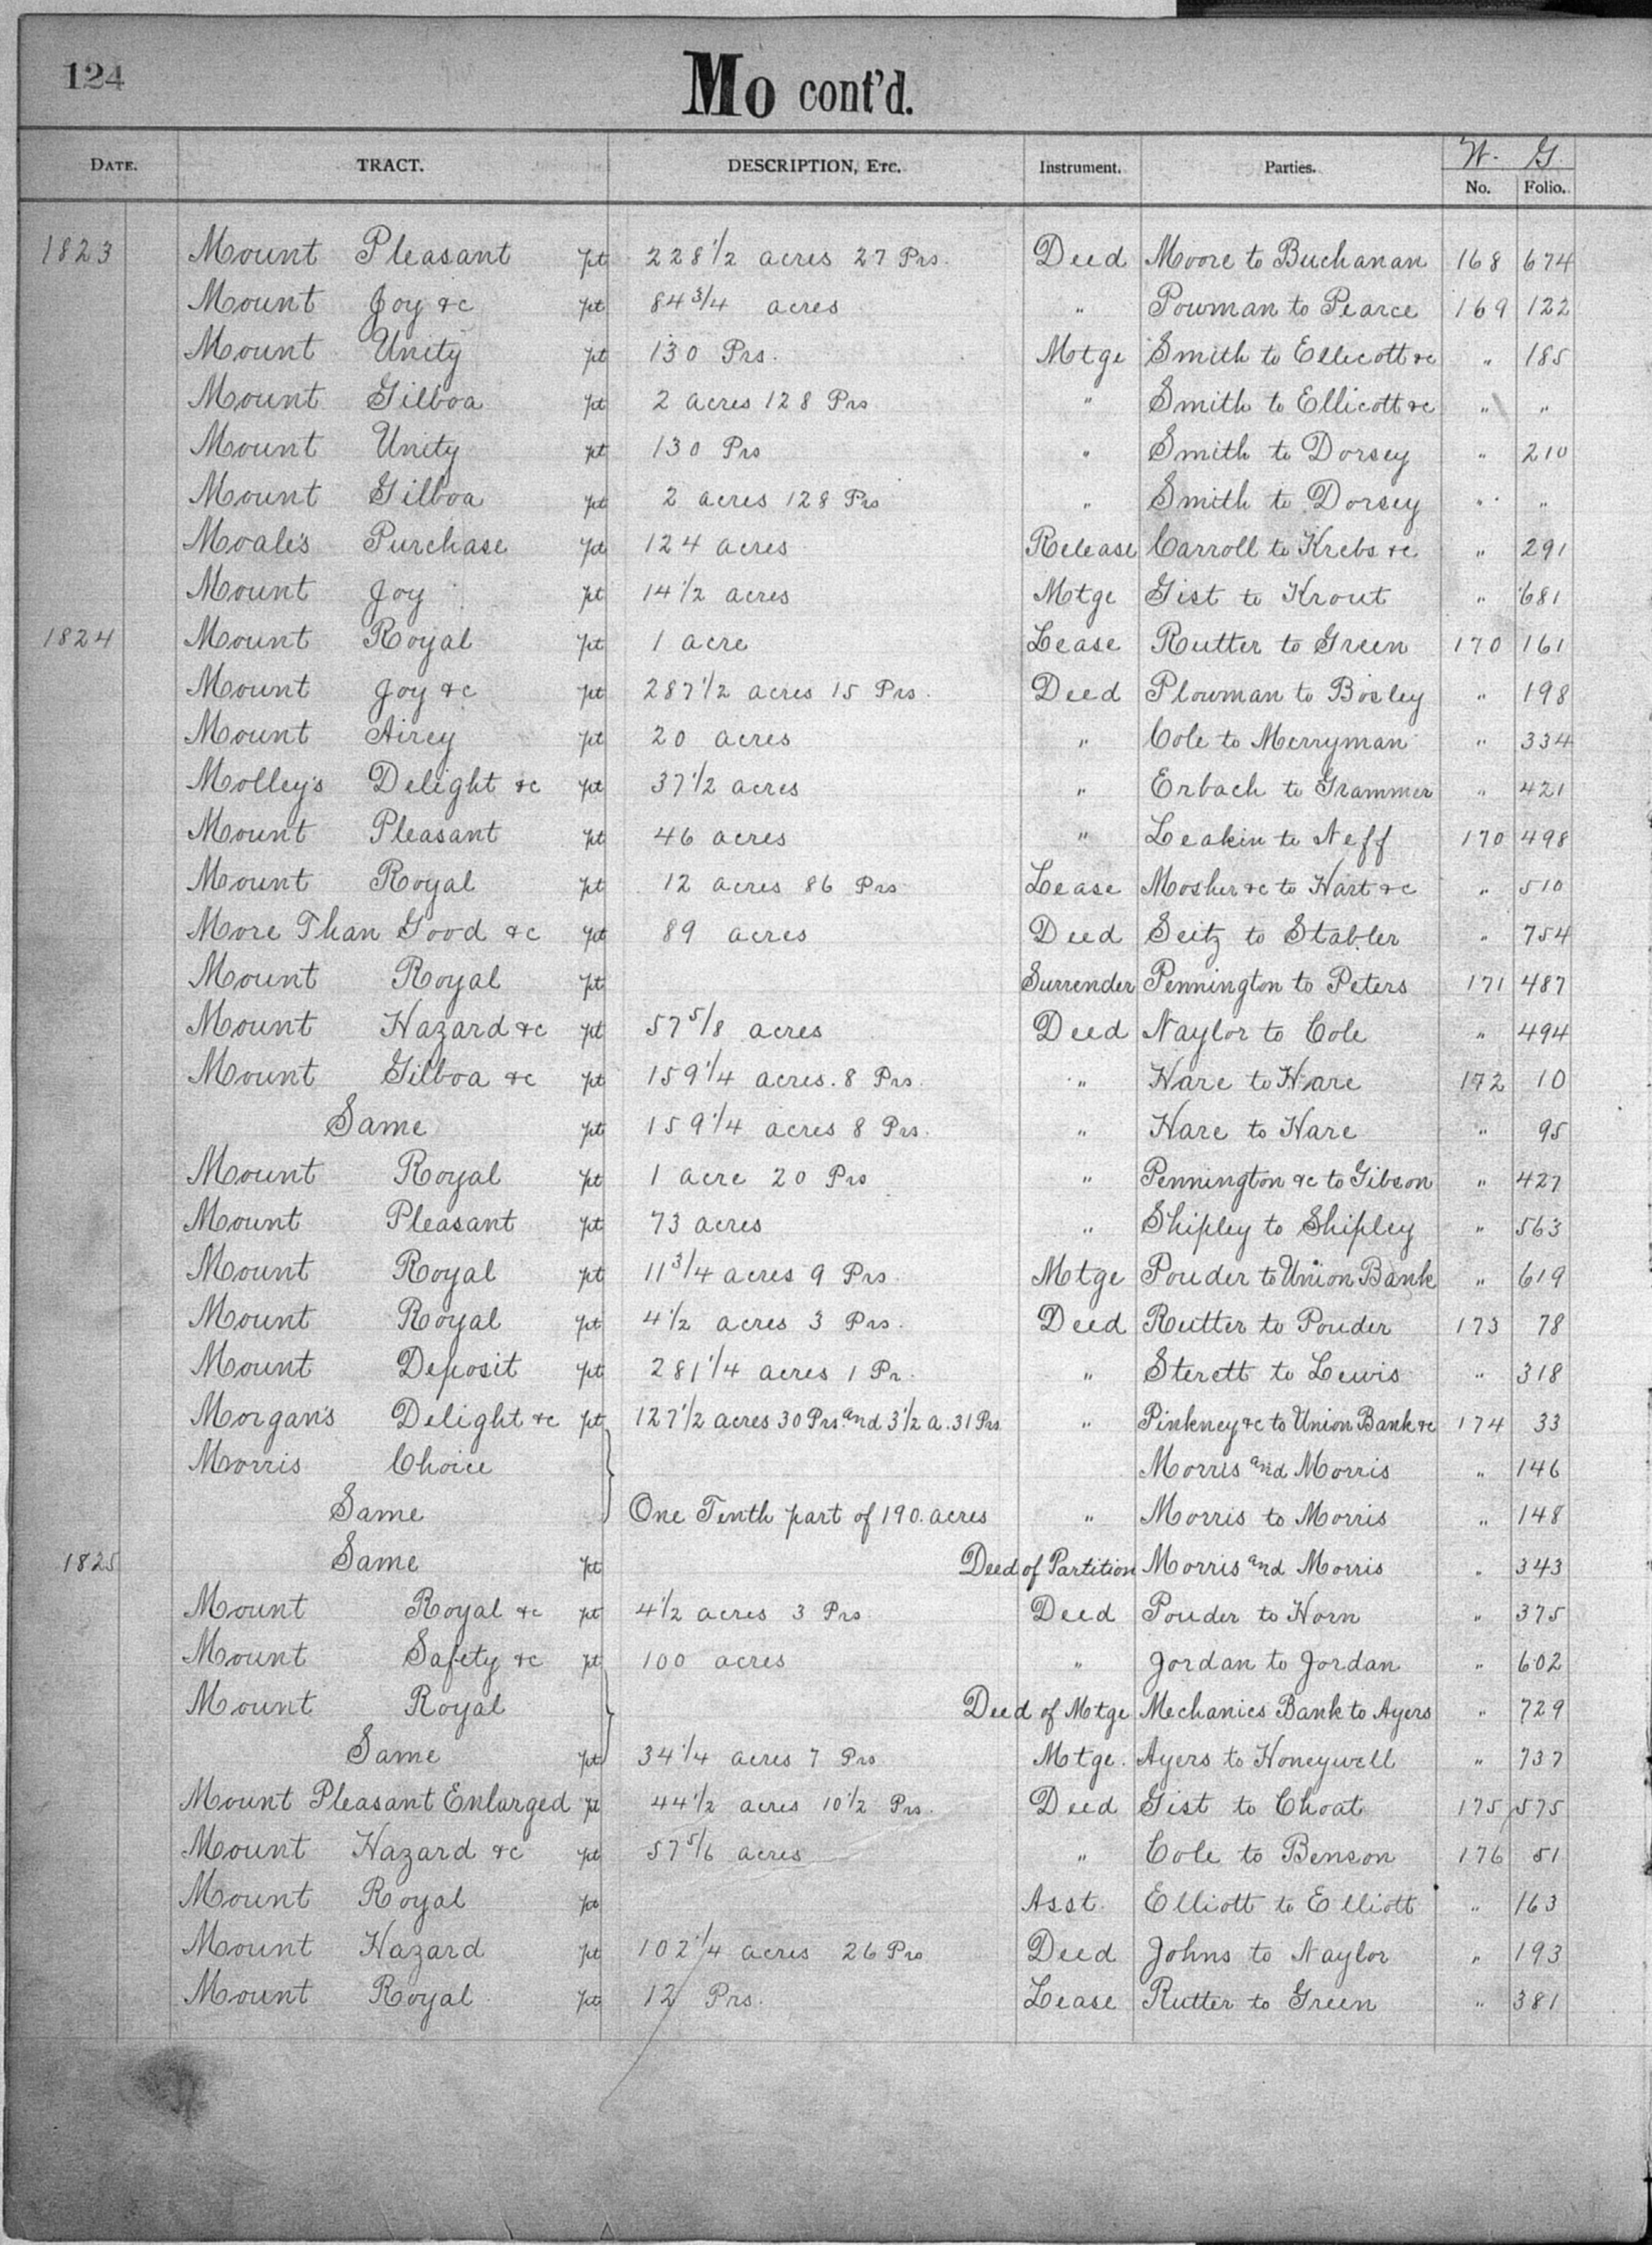 124 Mo cont'd.
W. G.
DATE. TRACT. DESCRIPTION, Etc. Instrument. Parties. No. Folio.
1823 Mount Pleasant pt 228 1/2 acres 27 Prs. Deed Moore to Buchanan 168 674
Mount Joy &c pt 84 3/4 acres " Powman to Pearce 169 122
Mount Unity pt 130 Prs. Motge Smith to Ellicott &c " 185
Mount Gilboa pt 2 acres 128 Prs " Smith to Ellicott &c " "
Mount Unity pt 130 Prs " Smith to Dorsey " 210
Mount Gilboa pt 2 acres 128 Prs " Smith to Dorsey " "
Moale's Purchase pt 124 acres Release Carroll to Krebs &c " 291
Mount Joy pt 14 1/2 acres Motge Gist to Krout " 681
1824 Mount Royal pt 1 acre Lease Rutter to Green 170 161
Mount Joy &c pt 287 1/2 acres 15 Prs. Deed Plowman to Bosley " 198
Mount Airey pt 20 acres " Cole to Merryman " 334
Molley's Delight &c pt 37 1/2 acres " Erbach to Grammer " 421
Mount Pleasant pt 46 acres " Leakin to Neff 170 498
Mount Royal pt 12 acres 86 Prs Lease Mosher &c to Hart &c " 510
More Than Good &c pt 89 acres Deed Seitz to Stabler " 754
Mount Royal pt Surrender Pennington to Peters 171 487
Mount Hazard &c pt 57 5/8 acres Deed Naylor to Cole " 494
Mount Gilboa &c pt 159 1/4 acres. 8 Prs. " Hare to Hare 172 10
Same pt 159 1/4 acres 8 Prs. " Hare to Hare " 95
Mount Royal pt 1 acre 20 Prs " Pennington &c to Gibson " 427
Mount Pleasant pt 73 acres " Shipley to Shipley " 563
Mount Royal pt 11 3/4 acres 9 Prs. Motge Pouder to Union Bank " 619
Mount Royal pt 4 1/2 acres 3 Prs. Deed Rutter to Pouder 173 78
Mount Deposit pt 281 1/4 acres 1 Pr. " Sterett to Lewis " 318
Morgan's Delight &c pt 127 1/2 acres 30 Prs. and 3 1/2 a. 31 Prs " Pinkney &c to Union Bank &c 174 33
Morris Choice Morris and Morris " 146
Same One Tenth part of 190. acres " Morris to Morris " 148
1825 Same pt Deed of Partition Morris and Morris " 343
Mount Royal &c pt 4 1/2 acres 3 Prs Deed Pouder to Horn " 375
Mount Safety &c pt 100 acres " Jordan to Jordan " 602
Mount Royal Deed of Motge Mechanics Bank to Ayers " 729
Same pt 34 1/4 acres 7 Prs Motge. Ayers to Honeywell " 737
Mount Pleasant Enlarged pt 44 1/2 acres 10 1/2 Prs. Deed Gist to Choat 175 575
Mount Hazard &c pt 57 5/6 acres " Cole to Benson 176 51
Mount Royal pt Asst. Elliott to Elliott " 163
Mount Hazard pt 102 1/4 acres 26 Prs Deed Johns to Naylor " 193
Mount Royal pt 12 Prs. Lease Rutter to Green " 381